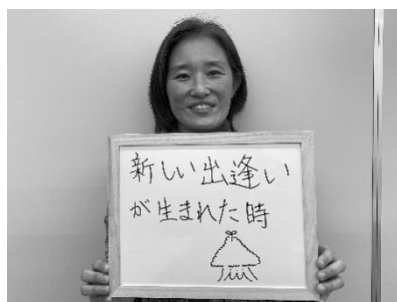 新しい出逢い
が生まれた時